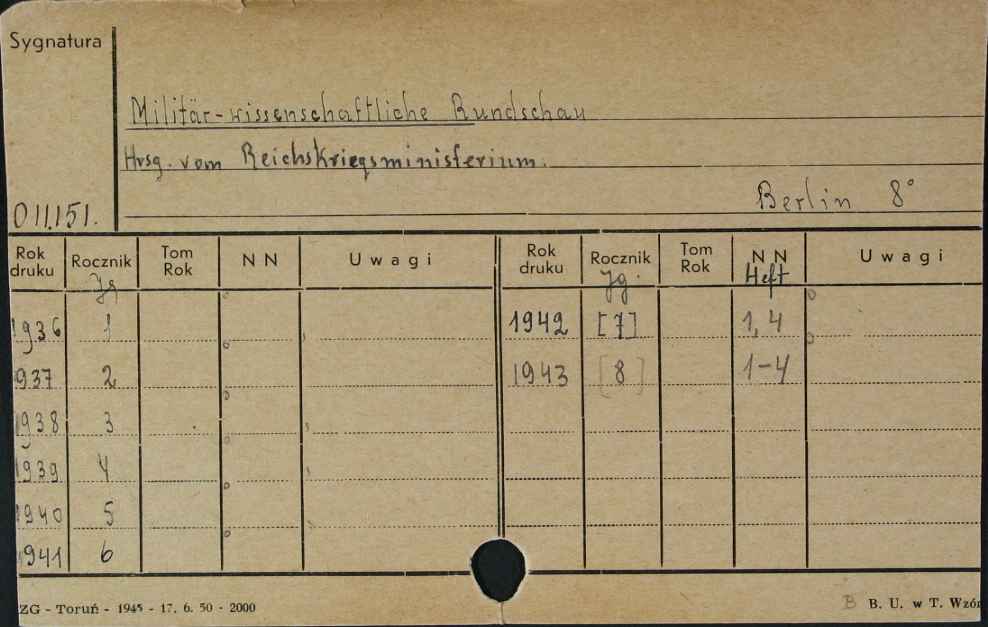 Sygnatura
Militär-wissenschaftliche Rundschau
Hrsg. vom Reichskriegsministerium.
Berlin 8°
011151.
Rok druku Rocznik Tom Rok NN Uwagi Rok druku Rocznik Tom Rok NN Uwagi
Jg Jg. Heft
1936 1 1942 [7] 1, 4
1937 2 1943 [8] 1-4
1938 3
1939 4
1940 5
1941 6
ZG - Toruń - 1945 - 17. 6. 50 - 2000
B B. U. w T. Wzór